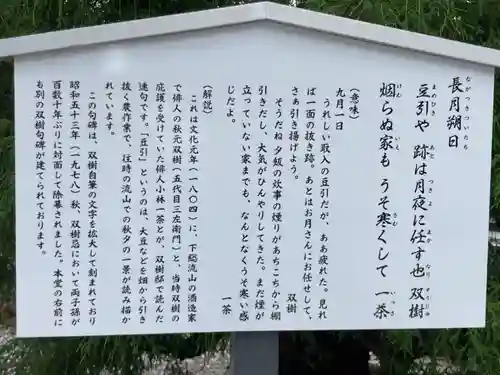 長月朔日
ながつきついたち
豆引や 跡は月夜に任す也 双樹
まめひき あと つきよ まか なり そうじゅ
烟らぬ家も うそ寒くして 一茶
けむ いえ さむ いっさ
(意味)
九月一日
うれしい取入の豆引だが、ああ疲れた。見れ
ば一面の抜き跡。あとはお月さんにお任せして、
さぁ引き揚げよう。 双樹
そうだね 夕飯の炊事の煙りがあちこちから棚
引きだし、大気がひんやりしてきた。まだ煙が
立っていない家までも、なんとなくうそ寒い感
じだよ。 一茶
(解説)
これは文化元年(一八〇四)に、下総流山の酒造家
で俳人の秋元双樹(五代目三左衛門)と、当時双樹の
庇護を受けていた俳人小林一茶とが、双樹邸で詠んだ
連句です。「豆引」というのは、大豆などを畑から引き
抜く農作業で、往時の流山での秋夕の一景が読み描か
れています。
この句碑は、双樹自筆の文字を拡大して刻まれており
昭和五十三年(一九七八)秋、双樹忌において両子孫が
百数十年ぶりに対面して除幕されました。本堂の右前に
も別の双樹句碑が建てられております。